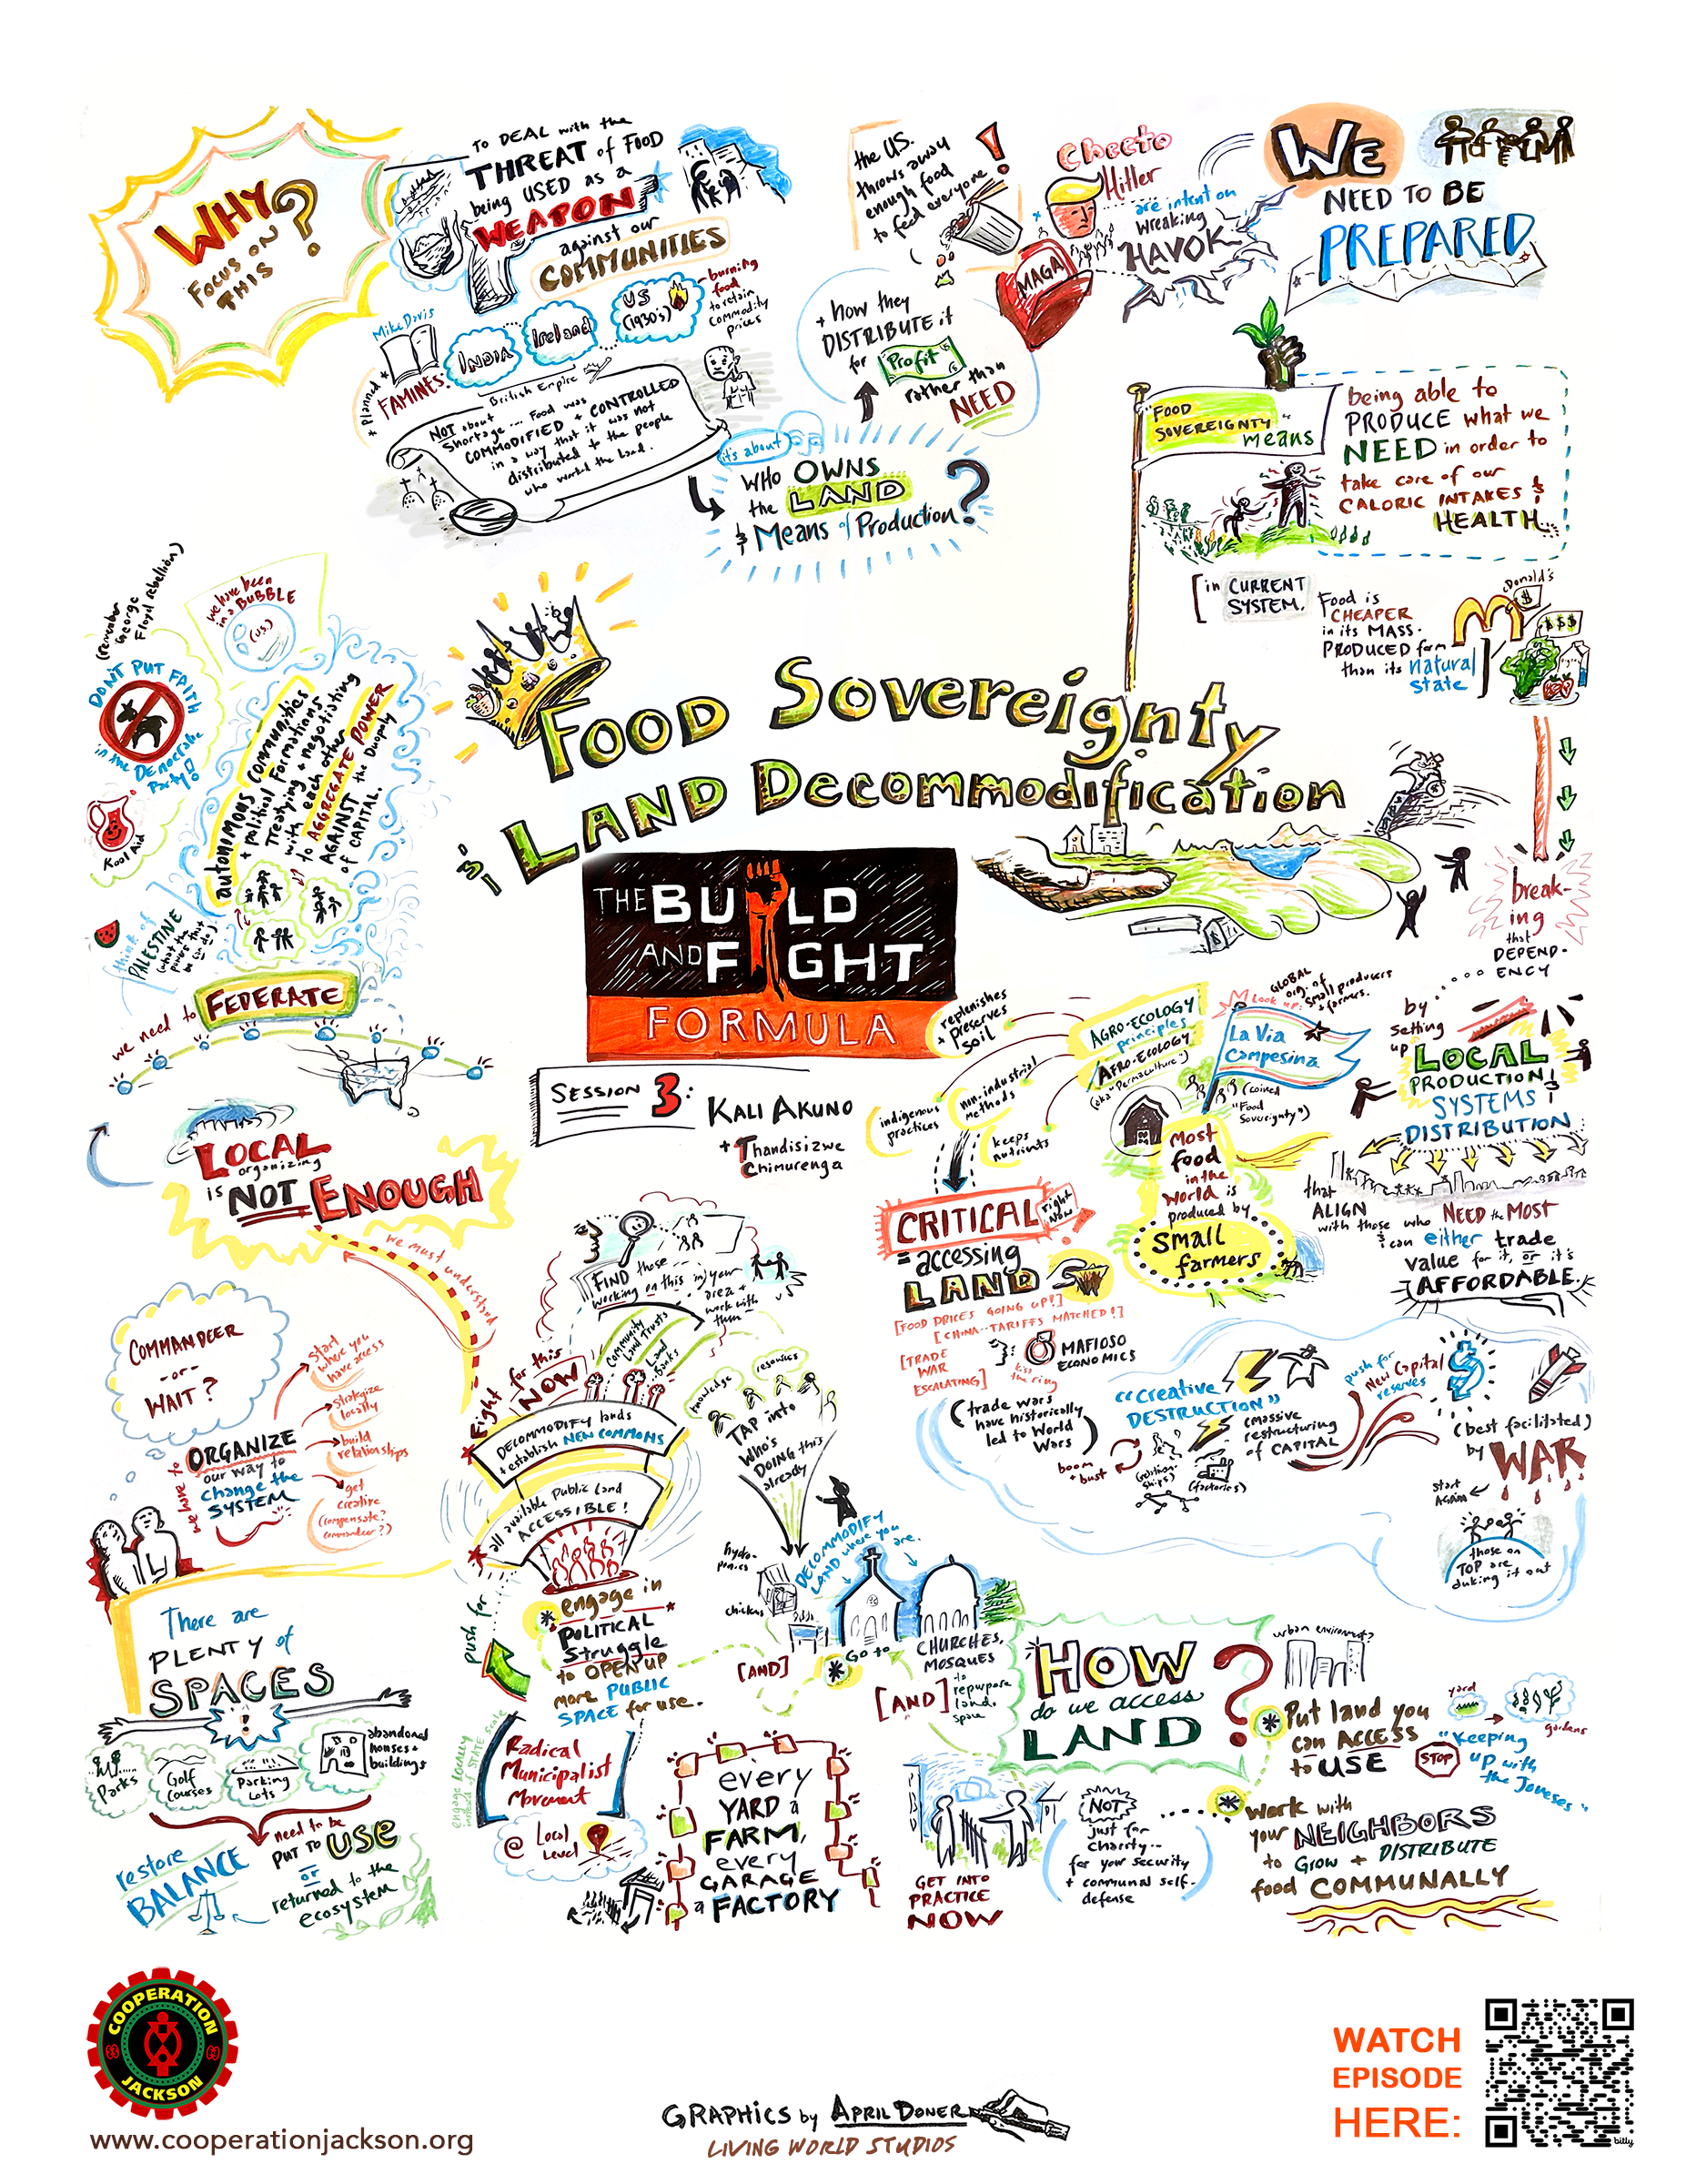 WHY
FOCUS ON
THIS
?
TO DEAL with the
THREAT of FOOD
being USED as a
WEAPON
against our
COMMUNITIES
Mike Davis
+ Planned +
FAMINES:
INDIA
Ireland
US
(1930's)
burning
food
to retain
commodity
prices
British Empire
NOT about
Shortage ... Food was
COMMODIFIED + CONTROLLED
in a way that it was not
distributed to the people
who worked the land.
it's about
WHO OWNS
the LAND
& Means of Production?
the US.
throws away
enough food
to feed everyone!
+ how they
DISTRIBUTE it
for Profit
rather than
NEED
Cheeto
Hitler
are intent on
wreaking
HAVOK
MAGA
WE
NEED TO BE
PREPARED
"FOOD
SOVEREIGNTY"
means
being able to
PRODUCE what we
NEED in order to
take care of our
CALORIC INTAKES &
HEALTH...
[in CURRENT
SYSTEM.
Food is
CHEAPER
in its MASS-
PRODUCED form
than its natural
state
M
Donald's
$
$$$
break-
ing
that
DEPEND-
ENCY
by
setting
up
LOCAL
PRODUCTION &
SYSTEMS
DISTRIBUTION
that
ALIGN
with those who NEED the MOST
& can either trade
value for it, or it's
AFFORDABLE.
(remember
George
Floyd rebellion)
we have been
in a BUBBLE
(U.S.)
DON'T PUT FAITH
in the Democratic
Party!
Kool Aid
think of
PALESTINE
autonimous communities
+ political Formations
Treatying + negotiating
with each other
to AGGREGATE POWER
AGAINST the Duopoly
of CAPITAL.
we need to
FEDERATE
LOCAL
organizing
is NOT ENOUGH
we must understand
FOOD Sovereignty
& LAND Decommodification
THE BUILD
AND FIGHT
FORMULA
SESSION 3:
KALI AKUNO
+ Thandisizwe
Chimurenga
replenishes
+ preserves
soil
AGRO-ECOLOGY
principles
AFRO-ECOLOGY
(aka "Permaculture")
indigenous
practices
non-industrial
methods
keeps
nutrients
Look up:
GLOBAL
org. of
Small producers
& farmers.
La Via
Campesina
(coined
"Food
Sovereignty")
Most
food
in the
World is
produced by
Small
farmers
CRITICAL
right
NOW
= accessing
LAND
[FOOD PRICES GOING UP!]
[CHINA - TARIFFS MATCHED!]
[TRADE
WAR
ESCALATING]
kiss
the ring
MAFIOSO
ECONOMICS
(trade wars
have historically
led to World
Wars)
"Creative
DESTRUCTION"
(massive
restructuring
of CAPITAL
boom
+ bust
(factories)
push for
New Capital
reserves
$
(best facilitated)
by WAR
start
AGAIN
those on
TOP are
duking it out
COMMANDEER
-or-
WAIT?
we have to
ORGANIZE
our way to
change the
SYSTEM
start
where you
have access
strategize
locally
build
relationships
get
creative
(compensate?
commandeer?)
FIND those
working on this in your
area +
work with
them
Community
Land Trusts
Land
Banks
Fight for this
NOW
DECOMMODIFY lands
+ establish NEW COMMONS
all available Public Land
ACCESSIBLE!
knowledge
resources
TAP into
Who's
DOING this
already
push for
engage in
POLITICAL
Struggle
to OPEN UP
more PUBLIC
SPACE for use.
engage locally
instead of STATE scale
Radical
Municipalist
Movement
@ Local
Level
hydro-
ponics
chickens
DECOMMODIFY
LAND where you
are.
[AND]
Go to
CHURCHES,
MOSQUES
to
repurpose
land.
space
[AND]
every
YARD a
FARM,
every
GARAGE
a FACTORY
There are
PLENTY of
SPACES
!
Parks
Golf
Courses
Parking
Lots
abandoned
houses +
buildings
need to be
PUT TO USE
or
returned to the
ecosystem
restore
BALANCE
HOW
do we access
LAND
?
urban environment?
Put land you
can ACCESS
to USE
yard
gardens
STOP
"Keeping
up with
the Joneses"
Work with
your NEIGHBORS
to Grow + DISTRIBUTE
food COMMUNALLY
NOT
just for
charity...
for your security
+ communal self-
defense
GET INTO
PRACTICE
NOW
COOPERATION
JACKSON
www.cooperationjackson.org
GRAPHICS by APRIL DONER
LIVING WORLD STUDIOS
WATCH
EPISODE
HERE:
bitly